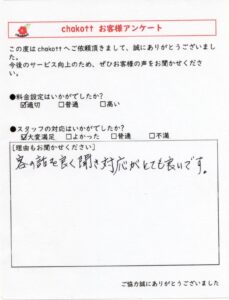 chakott お客様アンケート
この度はchakottへご依頼頂きまして、誠にありがとうございまし
た。
今後のサービス向上のため、ぜひお客様の声をお聞かせくださ
い。
●料金設定はいかがでしたか?
☑適切 □普通 □高い
●スタッフの対応はいかがでしたか?
☑大変満足 □よかった □普通 □不満
[理由もお聞かせください]
客の話を良く聞き対応がとても良いです。
ご協力誠にありがとうございました